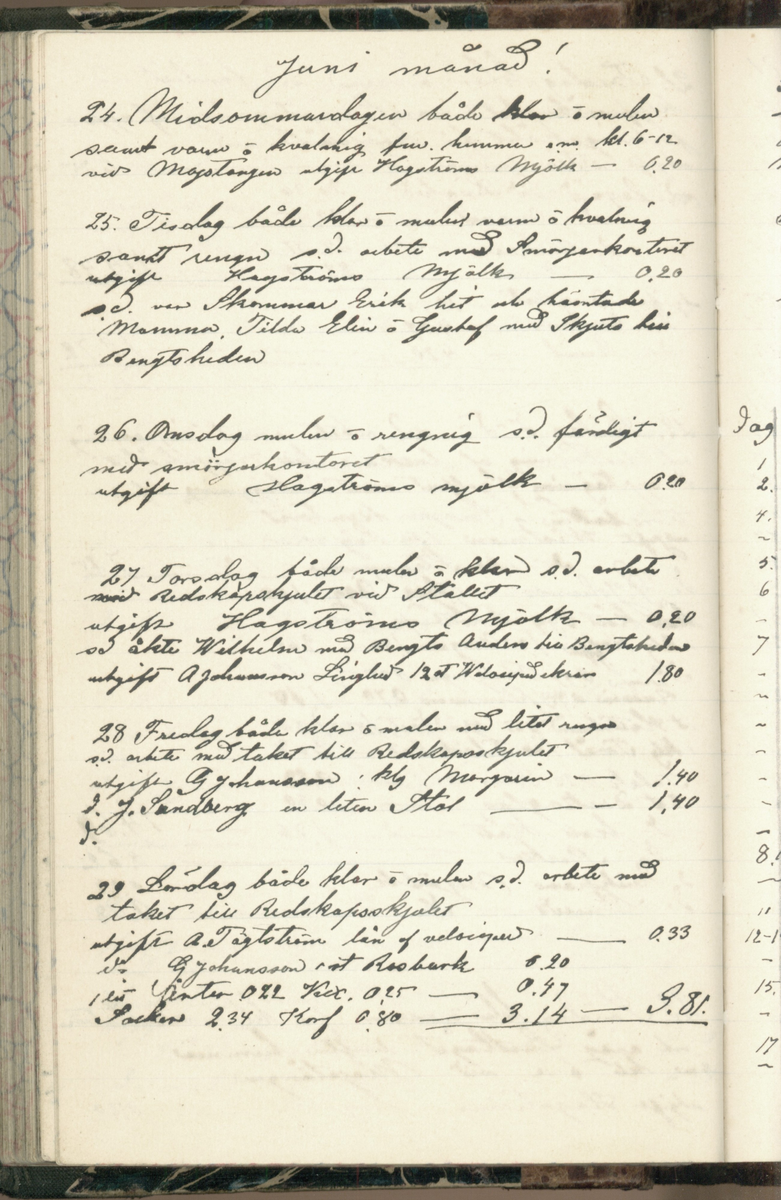 Juni månad!
24. Midsommardagen både klar o mulen
samt varm o kvalmig fm. hemma e.m. kl. 6-12
vid Majstangen utgift Hagströms Mjölk — 0.20
25. Tisdag både klar o mulet varm o kvalmig
samt rengn s.d. arbete med Smörjarkontoret
utgift Hagströms Mjölk — 0.20
s.d. var Skommar Erik hit och hämtade
Mamma, Tilda Elin o Gustaf med Skjuts till
Bengtsheden
26. Onsdag mulen o rengnig s.d. färdigt
med smörjarkontoret
utgift Hagströms mjölk — 0.20
27 Torsdag både mulen o klar s.d. arbete
med Redskapskjulet vid Stallet
utgift Hagströms Mjölk — 0.20
sd åkte Wilhelm med Bengts Anders till Bengtsheden
utgift A Johansson 12 st Velosiped 1.80
28 Fredag både klar o mulen med litet rengn
s.d. arbete med taket till Redskapsskjulet
utgift G Johansson 1 kg Margarin — 1.40
d. J. Sundberg en liten Stol — 1.40
d.
29 Lördag både klar o mulen s.d. arbete med
taket till Redskapsskjulet
utgift A. Tägtström lån af velosiped — 0.33
do G Johansson 1 st Rosbark 0.20
1 lit 0.22 Kex. 0.25 — 0.47
Socker 2.34 Korf 0.80 — 3.14 — 3.81.
Dag
1
2.
4.
~
5.
6
-
7
-
-
-
-
-
8.
~
11
12-1
-
15.
-
17
~